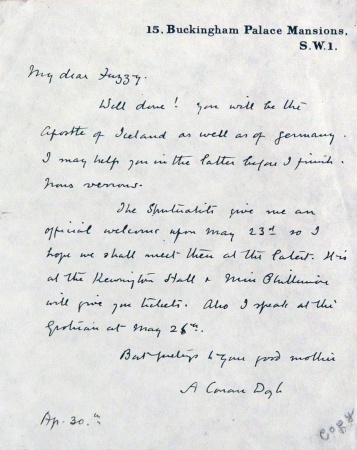 15, Buckingham Palace Mansions,
S.W.1.
My dear Fuzzy.
Well done! you will be the
Apostle of Iceland as well as of Germany.
I may help you in the latter before I finish.
Nous verrons.
The Spiritualists give me an
official welcome upon May 23rd so I
hope we shall meet then at the latest. It is
at the Kensington Hall & Miss
will give you tickets. Also I speak at the
Grotrian at May 26th.
Best greetings to your good mother
A Conan Doyle
Ap. 30.th
copy